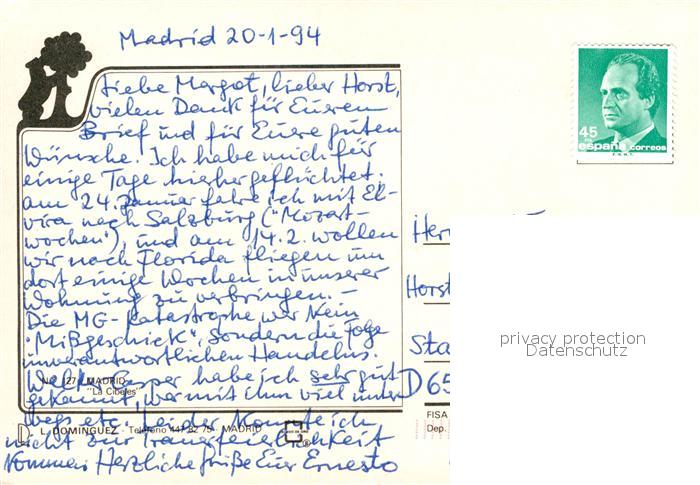 Madrid 20-1-94
Liebe Margot, lieber Horst,
vielen Dank für Eueren
Brief und für Euere guten
Wünsche. Ich habe mich für
einige Tage hierher geflüchtet.
am 24. Januar fahre ich mit El-
vira nach Salzburg ("Mozart-
wochen"), und am 14.2. wollen
wir nach Florida fliegen um
dort einige Wochen in unserer
Wohnung zu verbringen. -
Die MG-Katastrophe war kein
"Mißgeschick", sondern die Folge
unverantwortlichen Handelns.
habe ich sehr gut
gekannt, war mit ihm viel unter
wegs etc. Leider konnte ich
nicht zur Trauerfeierlichkeit
kommen. Herzliche Grüße Euer Ernesto
127 MADRID
"La Cibeles"
D. L. DOMINGUEZ - Teléfono 447 82 75 - MADRID
45
españa correos
F.N.M.T.
Her
Horst
Sta
D 65
FISA
Dep.
privacy protection
Datenschutz